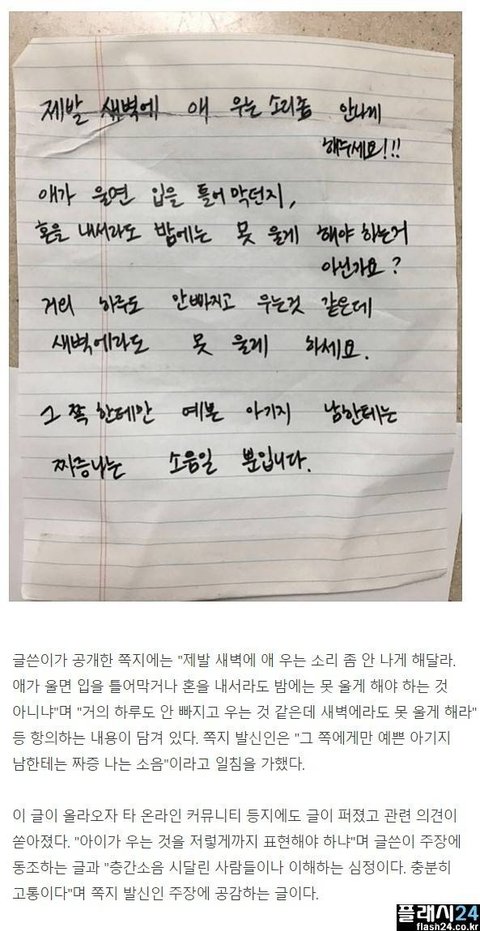 제발 새벽에 애 우는 소리좀 안나게
해주세요!!!
애가 울면 입을 틀어막던지,
혼을 내서라도 밤에는 못 울게 해야 하는거
아닌가요?
거의 하루도 안빠지고 우는것 같은데
새벽에라도 못 울게 하세요.
그 쪽한테만 예쁜 아기지 남한테는
짜증나는 소음일 뿐입니다.
글쓴이가 공개한 쪽지에는 "제발 새벽에 애 우는 소리 좀 안 나게 해달라.
애가 울면 입을 틀어막거나 혼을 내서라도 밤에는 못 울게 해야 하는 것
아니냐"며 "거의 하루도 안 빠지고 우는 것 같은데 새벽에라도 못 울게 해라"
등 항의하는 내용이 담겨 있다. 쪽지 발신인은 "그 쪽에게만 예쁜 아기지
남한테는 짜증 나는 소음"이라고 일침을 가했다.
이 글이 올라오자 타 온라인 커뮤니티 등지에도 글이 퍼졌고 관련 의견이
쏟아졌다. "아이가 우는 것을 저렇게까지 표현해야 하냐"며 글쓴이 주장에
동조하는 글과 "층간소음 시달린 사람들이나 이해하는 심정이다. 충분히
고통이다"며 쪽지 발신인 주장에 공감하는 글이다.
플래시24
flash24.co.kr